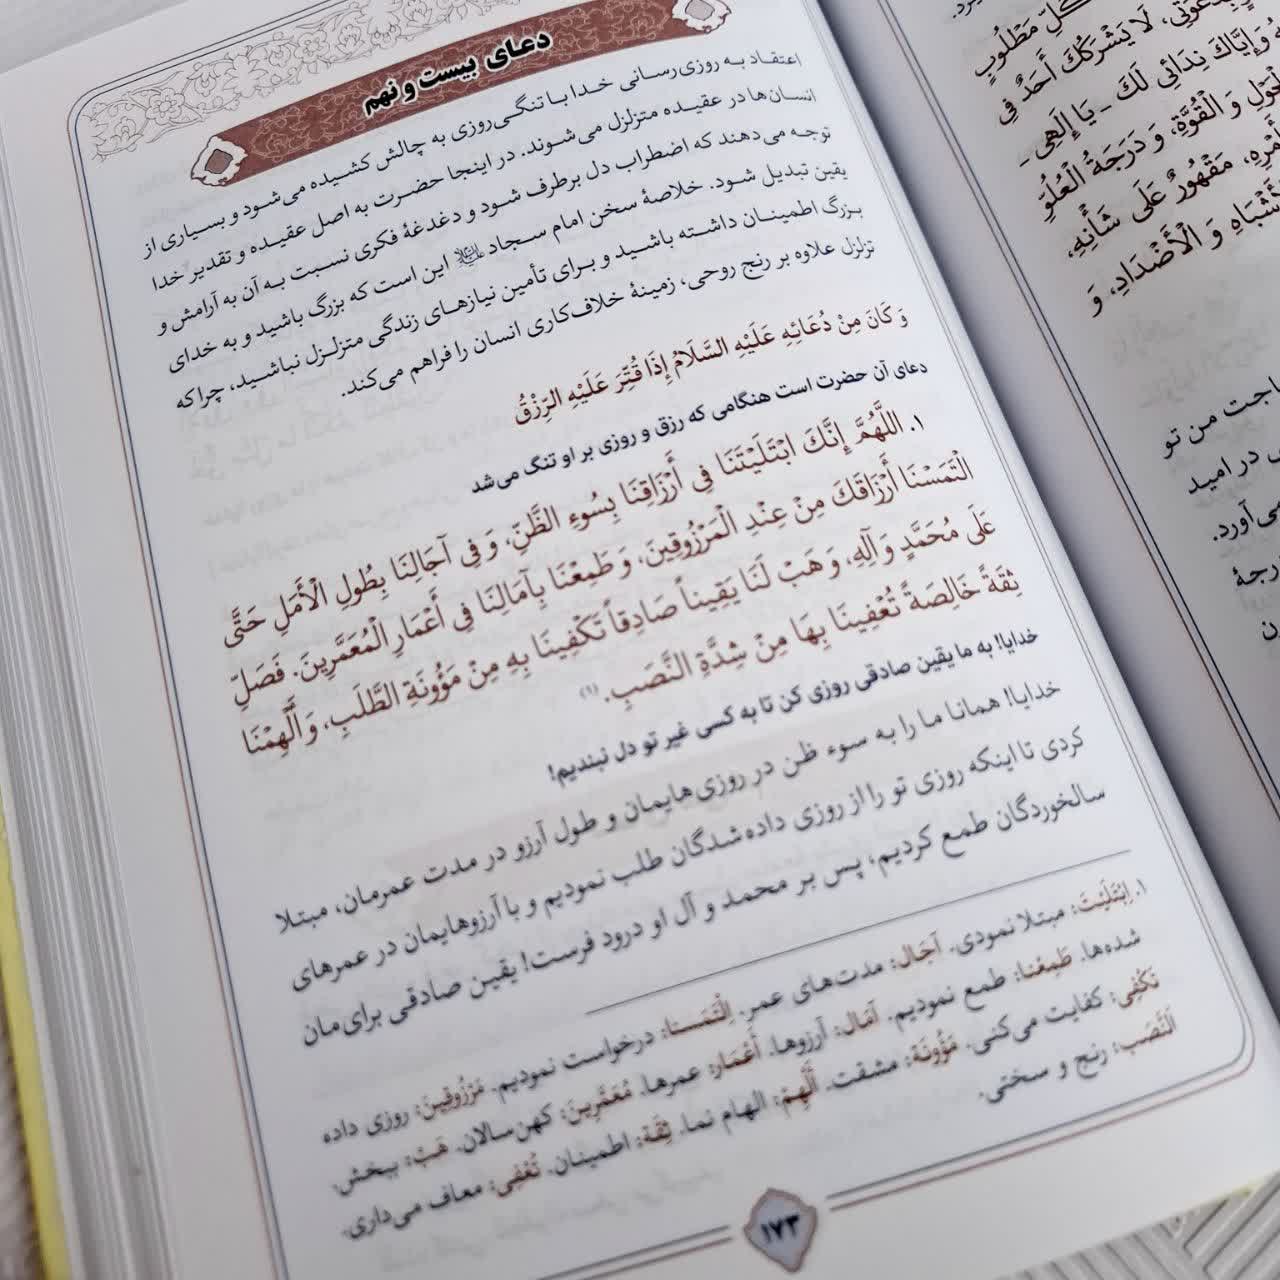 دعای بیست و نهم
اعتقاد به روزی‌رسانی خدا با تنگی‌روزی به چالش کشیده می‌شود و بسیاری از
انسان‌ها در عقیده متزلزل می‌شوند. در اینجا حضرت به اصل عقیده و تقدیر خدا
توجه می‌دهند که اضطراب دل برطرف شود و دغدغهٔ فکری نسبت به آن به آرامش و
یقین تبدیل شود. خلاصهٔ سخن امام سجاد علیه‌السلام این است که بزرگ باشید و به خدای
بزرگ اطمینان داشته باشید و برای تأمین نیازهای زندگی متزلزل نباشید، چراکه
تزلزل علاوه بر رنج روحی، زمینهٔ خلاف‌کاری انسان را فراهم می‌کند.
وَ كَانَ مِنْ دُعَائِهِ عَلَيْهِ السَّلَامُ إِذَا قُتِّرَ عَلَيْهِ الرِّزْقُ
دعای آن حضرت است هنگامی که رزق و روزی بر او تنگ می‌شد
۱. اللَّهُمَّ إِنَّكَ ابْتَلَيْتَنَا فِي أَرْزَاقِنَا بِسُوءِ الظَّنِّ، وَ فِي آجَالِنَا بِطُولِ الْأَمَلِ حَتَّى
الْتَمَسْنَا أَرْزَاقَكَ مِنْ عِنْدِ الْمَرْزُوقِينَ، وَ طَمِعْنَا بِآمَالِنَا فِي أَعْمَارِ الْمُعَمَّرِينَ. فَصَلِّ
عَلَى مُحَمَّدٍ وَ آلِهِ، وَ هَبْ لَنَا يَقِيناً صَادِقاً تَكْفِينَا بِهِ مِنْ مَؤُونَةِ الطَّلَبِ، وَ أَلْهِمْنَا
ثِقَةً خَالِصَةً تُعْفِينَا بِهَا مِنْ شِدَّةِ النَّصَبِ.(۱)
خدایا! به ما یقین صادقی روزی کن تا به کسی غیر تو دل نبندیم!
خدایا! همانا ما را به سوء ظن در روزی‌هایمان و طول آرزو در مدت عمرمان، مبتلا
کردی تا اینکه روزی تو را از روزی داده‌شدگان طلب نمودیم و با آرزوهایمان در عمرهای
سالخوردگان طمع کردیم، پس بر محمد و آل او درود فرست! یقین صادقی برای‌مان
۱. اِبْتَلَيْتَ: مبتلا نمودی. آجَال: مدت‌های عمر. اِلْتَمَسْنا: درخواست نمودیم. مَرْزُوقِينَ: روزی داده
شده‌ها. طَمِعْنا: طمع نمودیم. آمَال: آرزوها. أَعْمَار: عمرها. مُعَمَّرِينَ: کهن‌سالان. هَبْ: ببخش.
تَكْفِي: کفایت می‌کنی. مَؤُونَة: مشقت. أَلْهِمْ: الهام نما. ثِقَة: اطمینان. تُعْفِي: معاف می‌داری.
اَلنَّصَب: رنج و سختی.
۱۷۳
كُلِّ مَطْلُوبٍ
بِدَعْوَتِي، لَا يَشْرَكُكَ أَحَدٌ فِي
وَ إِيَّاكَ نِدَائِي لَكَ - يَا إِلَهِي -
الْحَوْلِ وَ الْقُوَّةِ، وَ دَرَجَةُ الْعُلُوِّ
أَمْرِهِ، مَقْهُورٌ عَلَى شَأْنِهِ،
الْأَشْبَاهِ وَ الْأَضْدَادِ، وَ
اجت من تو
در امید
می‌آورد.